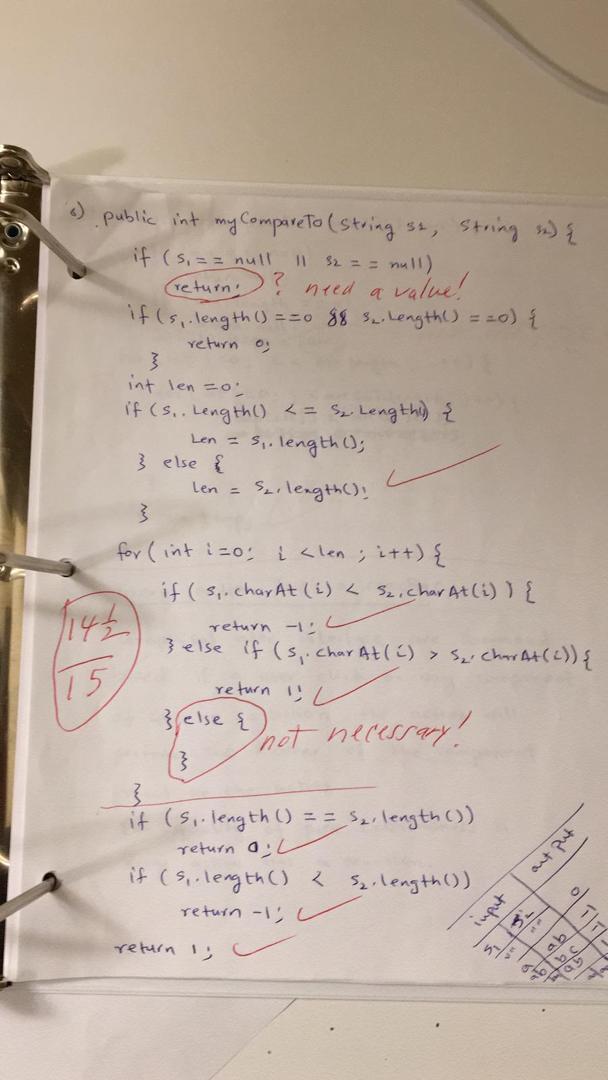 6) public int myCompareTo(String s1, String s2) {
if (s1 == null || s2 == null)
return; ? need a value!
if (s1.length() ==0 && s2.Length() ==0) {
return 0;
}
int len =0;
if (s1.Length() <= s2.Length()) {
Len = s1.length();
} else {
Len = s2.length();
}
for (int i=0; i <len ; i++) {
if (s1.charAt(i) < s2.charAt(i)) {
return -1;
} else if (s1.charAt(i) > s2.charAt(i)) {
return 1;
} else { not necessary!
}
}
14 1/2
15
if (s1.length() == s2.length())
return 0;
if (s1.length() < s2.length())
return -1;
return 1;
input output
s1 s2
"" "" 0
ab -1
bc -1
ab ab